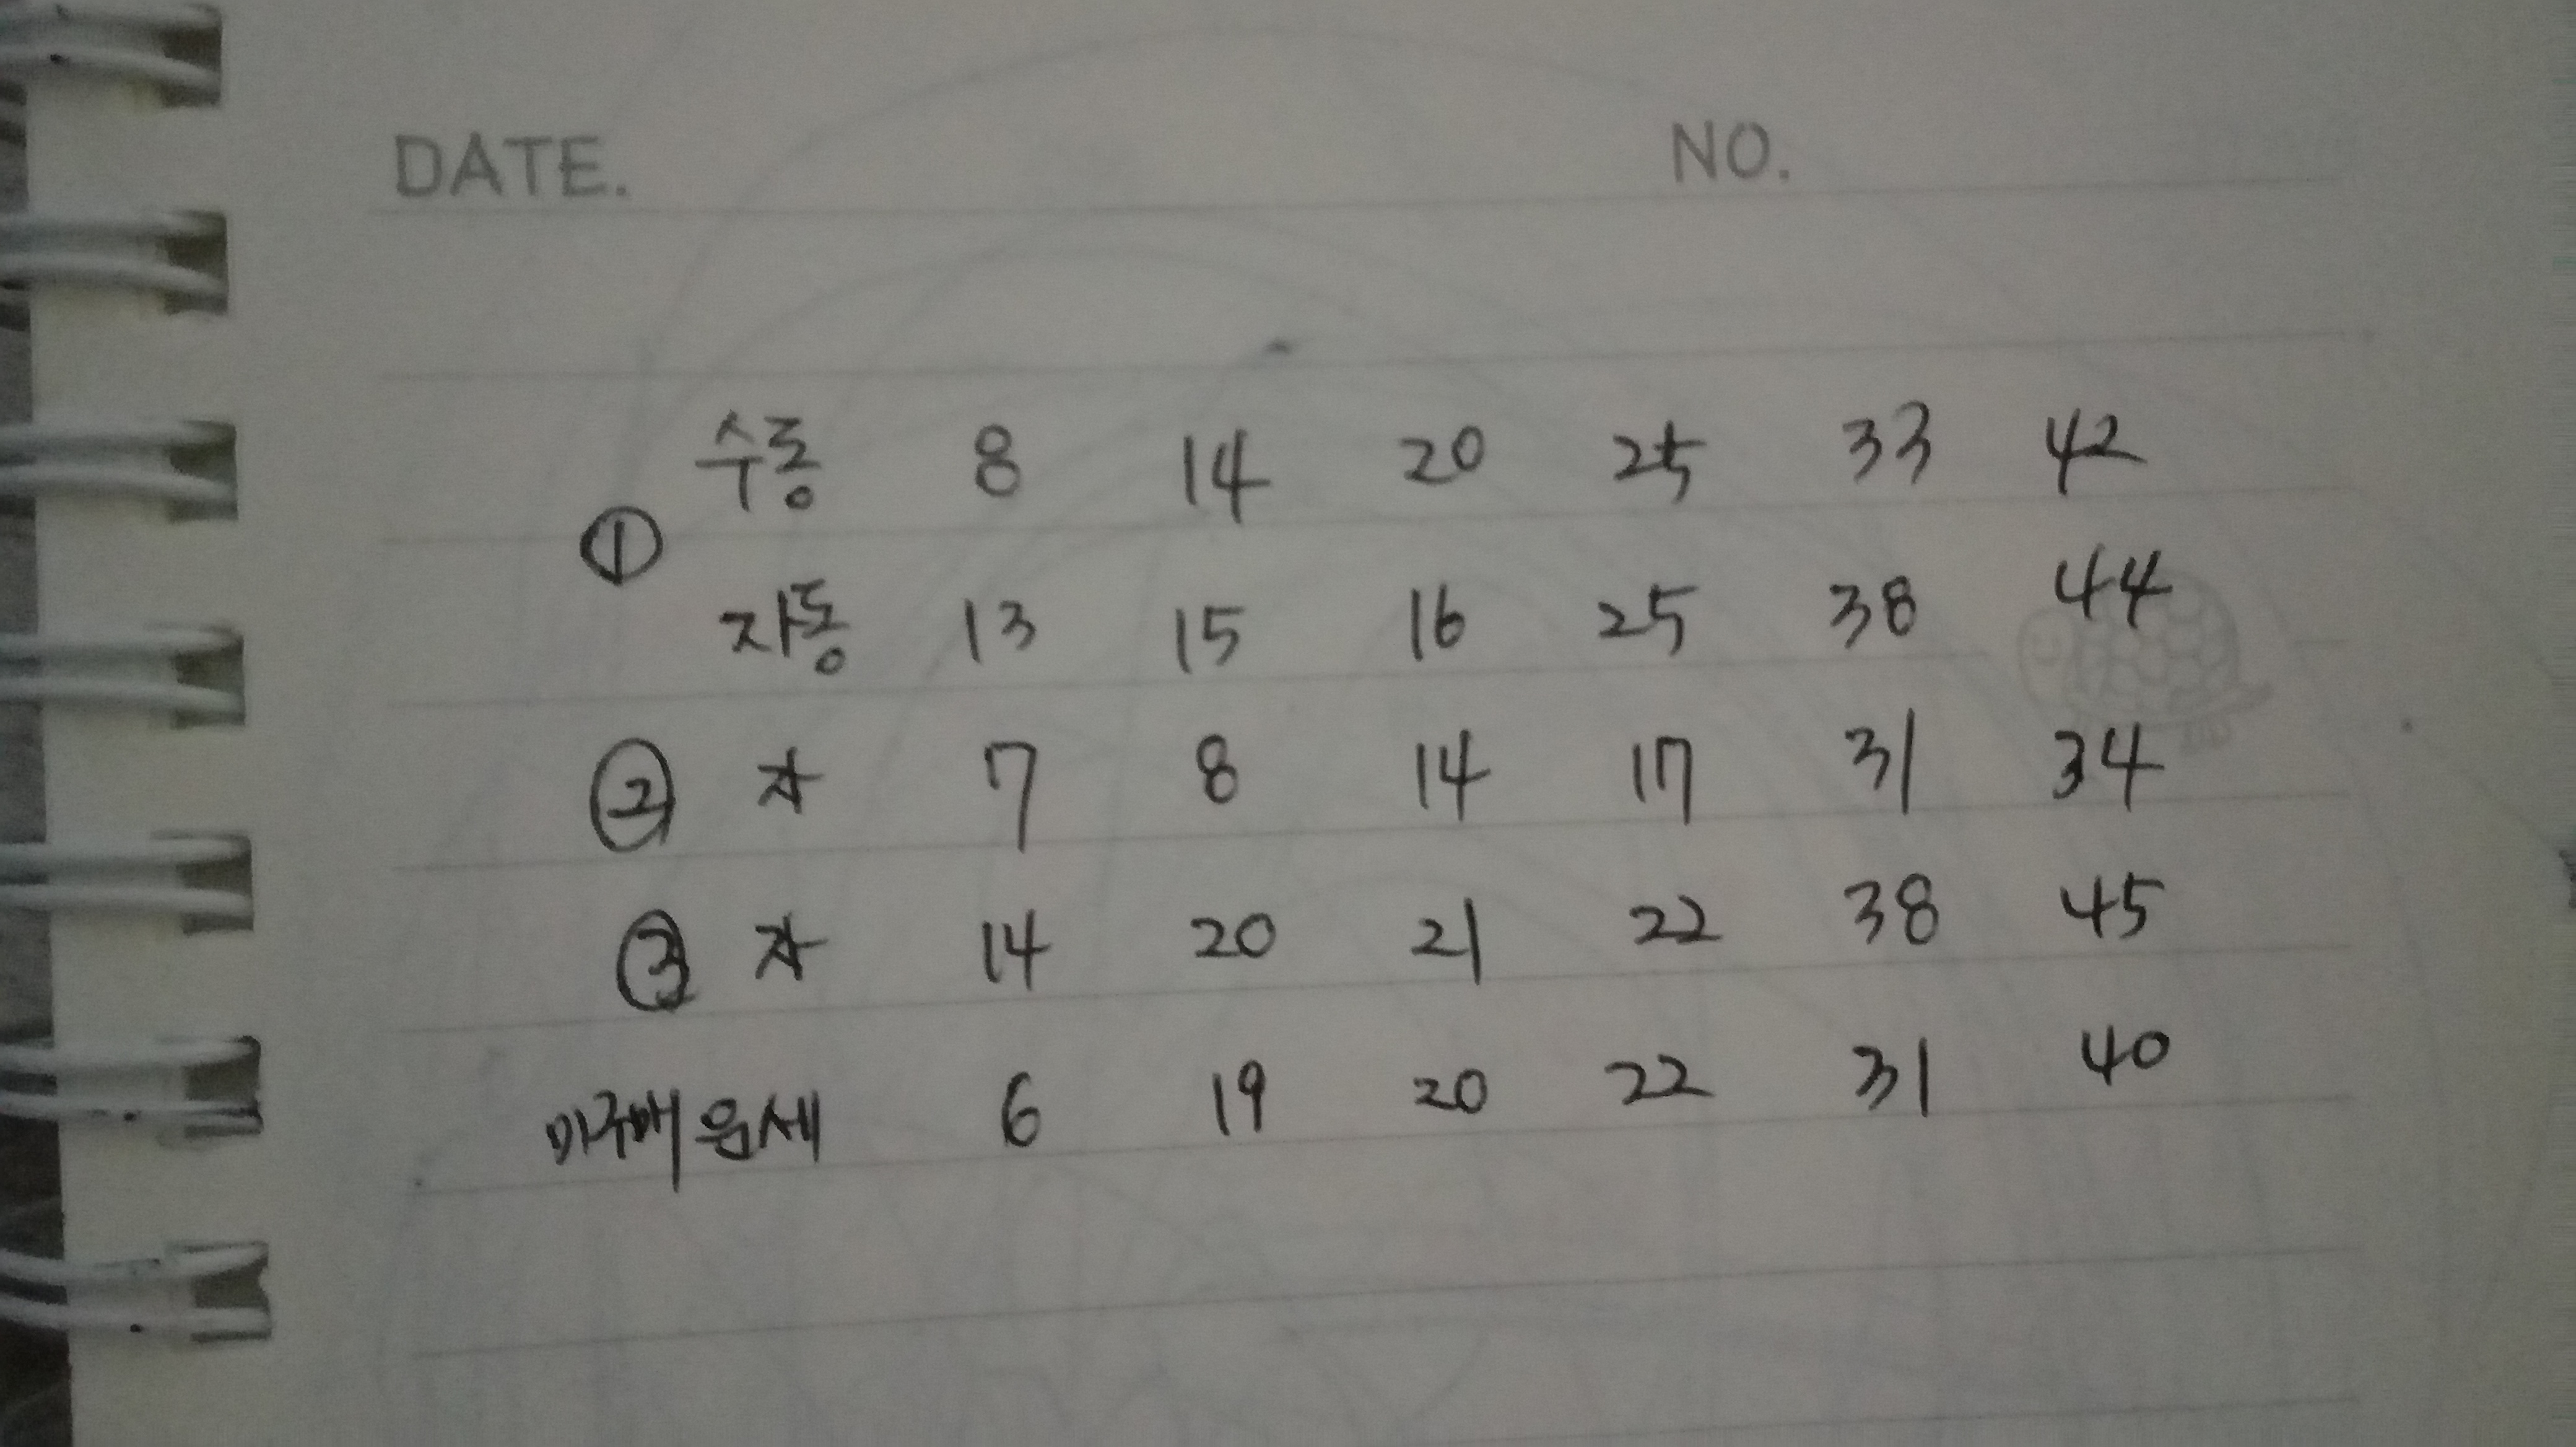 DATE. NO.
수동 8 14 20 25 33 42
①
자동 13 15 16 25 38 44
② 자 7 8 14 17 31 34
③ 자 14 20 21 22 38 45
미구매 운세 6 19 20 22 31 40